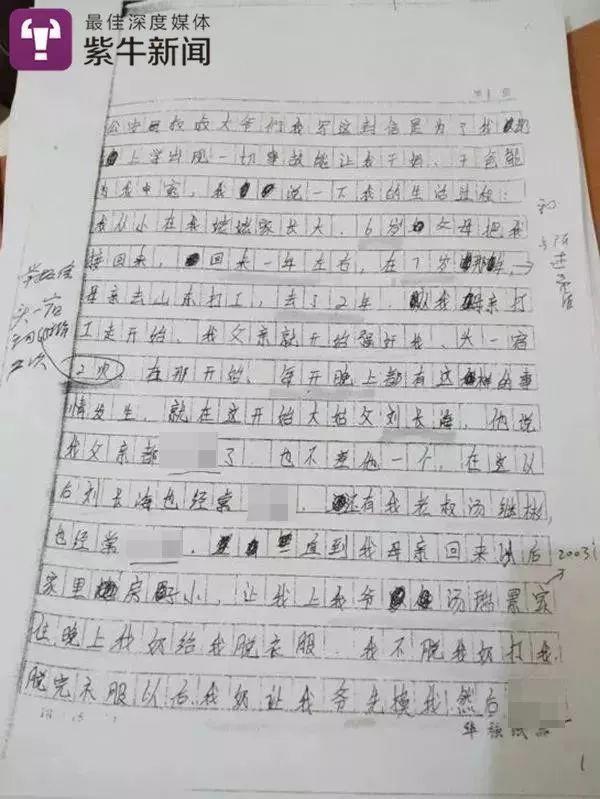 最佳深度媒体
紫牛新闻
第1页
公安 大爷们我写这封信是为了我
上学出现一切事故能让我干妈、干爸能
为我申冤，我 说一下我的生活过程：
我从小在我 家长大，6岁 父母把我
接回来， 回来一年左右，在7岁那年，
母亲去山东打工，去了2年， 从我母亲打
工走开始，我父亲就开始强奸我，头一宿
2次，在那开始，每天晚上都有这样的事
情发生，就在这开始大姑父刘长海，他说
我父亲都 了，也不差他一个，在这以
后刘长海也经常 ， 还有我老叔汤继彬，
也经常 ， 直到我母亲回来以后
家里 房子小，让我上我爷 汤瑞景家
住晚上我奶给我脱衣服，我不脱我奶打我，
脱完衣服以后我奶让我爷先摸我然后
头一宿
2次
2003
1